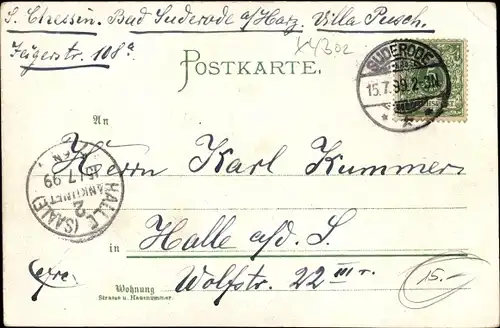 S. Chessin. Bad Suderode a/Harz. Villa Pusch.
Jägerstr. 108a
X4302
POSTKARTE.
SUDERODE
15.7.99. 2-3N.
An
Herrn Karl Kummer
HALLE (SAALE)
ANKUNFT
15.7.99
2
in Halle a/d. S.
Wolfstr. 22 III r.
Wohnung
Strasse u. Hausnummer.
15.-